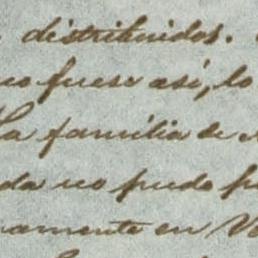 distribuidos.
no fuese así, lo
La familia de
da no pudo
amente en